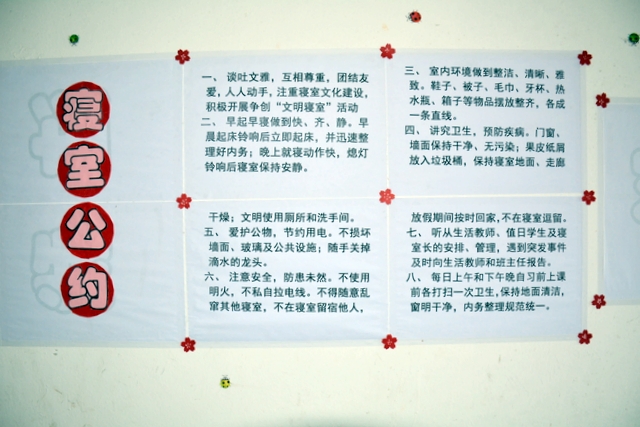 寝室公约
一、谈吐文雅，互相尊重，团结友
爱，人人动手，注重寝室文化建设，
积极开展争创“文明寝室”活动
二、早起早寝做到快、齐、静。早
晨起床铃响后立即起床，并迅速整
理好内务；晚上就寝动作快，熄灯
铃响后寝室保持安静。
三、室内环境做到整洁、清晰、雅
致。鞋子、被子、毛巾、牙杯、热
水瓶、箱子等物品摆放整齐，各成
一条直线。
四、讲究卫生，预防疾病。门窗、
墙面保持干净、无污染；果皮纸屑
放入垃圾桶，保持寝室地面、走廊
干燥；文明使用厕所和洗手间。
五、爱护公物，节约用电。不损坏
墙面、玻璃及公共设施；随手关掉
滴水的龙头。
六、注意安全，防患未然。不使用
明火，不私自拉电线。不得随意乱
窜其他寝室，不在寝室留宿他人，
放假期间按时回家，不在寝室逗留。
七、听从生活教师、值日学生及寝
室长的安排、管理，遇到突发事件
及时向生活教师和班主任报告。
八、每日上午和下午晚自习前上课
前各打扫一次卫生，保持地面清洁，
窗明干净，内务整理规范统一。